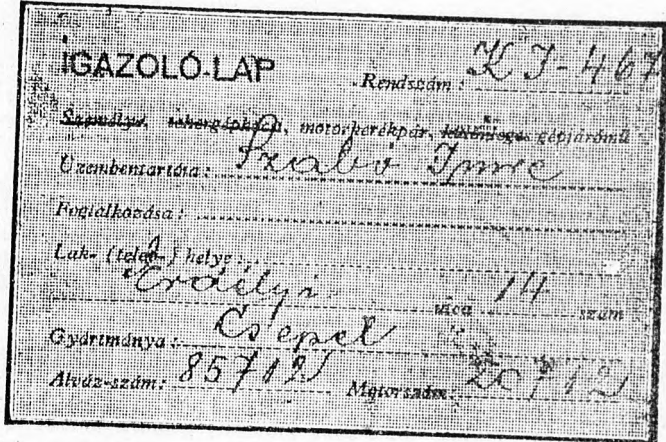 IGAZOLÓ-LAP
Rendszám: KJ-467
Személy-, tehergépkocsi, motorkerékpár, különleges gépjármű
Üzembentartója: Szabó Imre
Foglalkozása:
Lak- (telep-) helye:
Erdélyi utca 14 szám
Gyártmánya: Csepel
Alváz-szám: 85712 Motorszám: